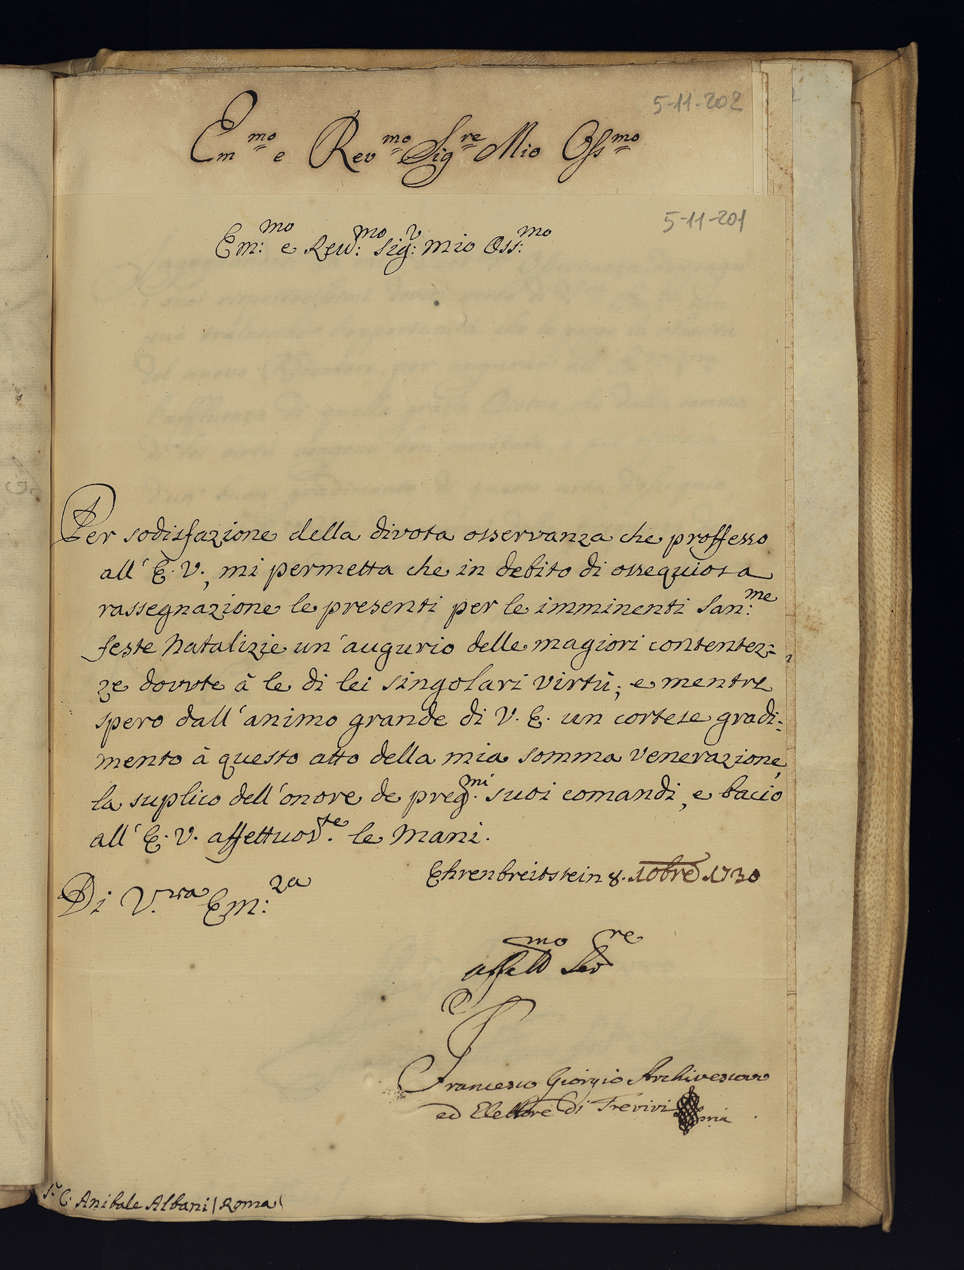 5-11-202
Em.mo e Rev.mo Sig.re Mio Oss.mo
5-11-201
Em:mo e Rev:mo Sig:r mio Oss:mo
Per sodisfazione della divota osservanza che proffesso
all' E. V., mi permetta che in debito di ossequiosa
rassegnazione le presenti per le imminenti San:me
feste Natalizie un'augurio delle magiori contentez=
ze dovute à le di lei singolari virtù; e mentre
spero dall'animo grande di V. E. un cortese gradi=
mento à questo atto della mia somma venerazione,
la suplico dell'onore de preg:mi suoi comandi, e bacio
all' E. V. affettuos:te le Mani.
Ehrenbreitstein 8. 10bre 1730
Di V.ra Em:za
affett.mo Ser.re
Francesco Giorgio Arcivescovo
ed Elettore di Treviri
S.r C: Anibale Albani (Roma)